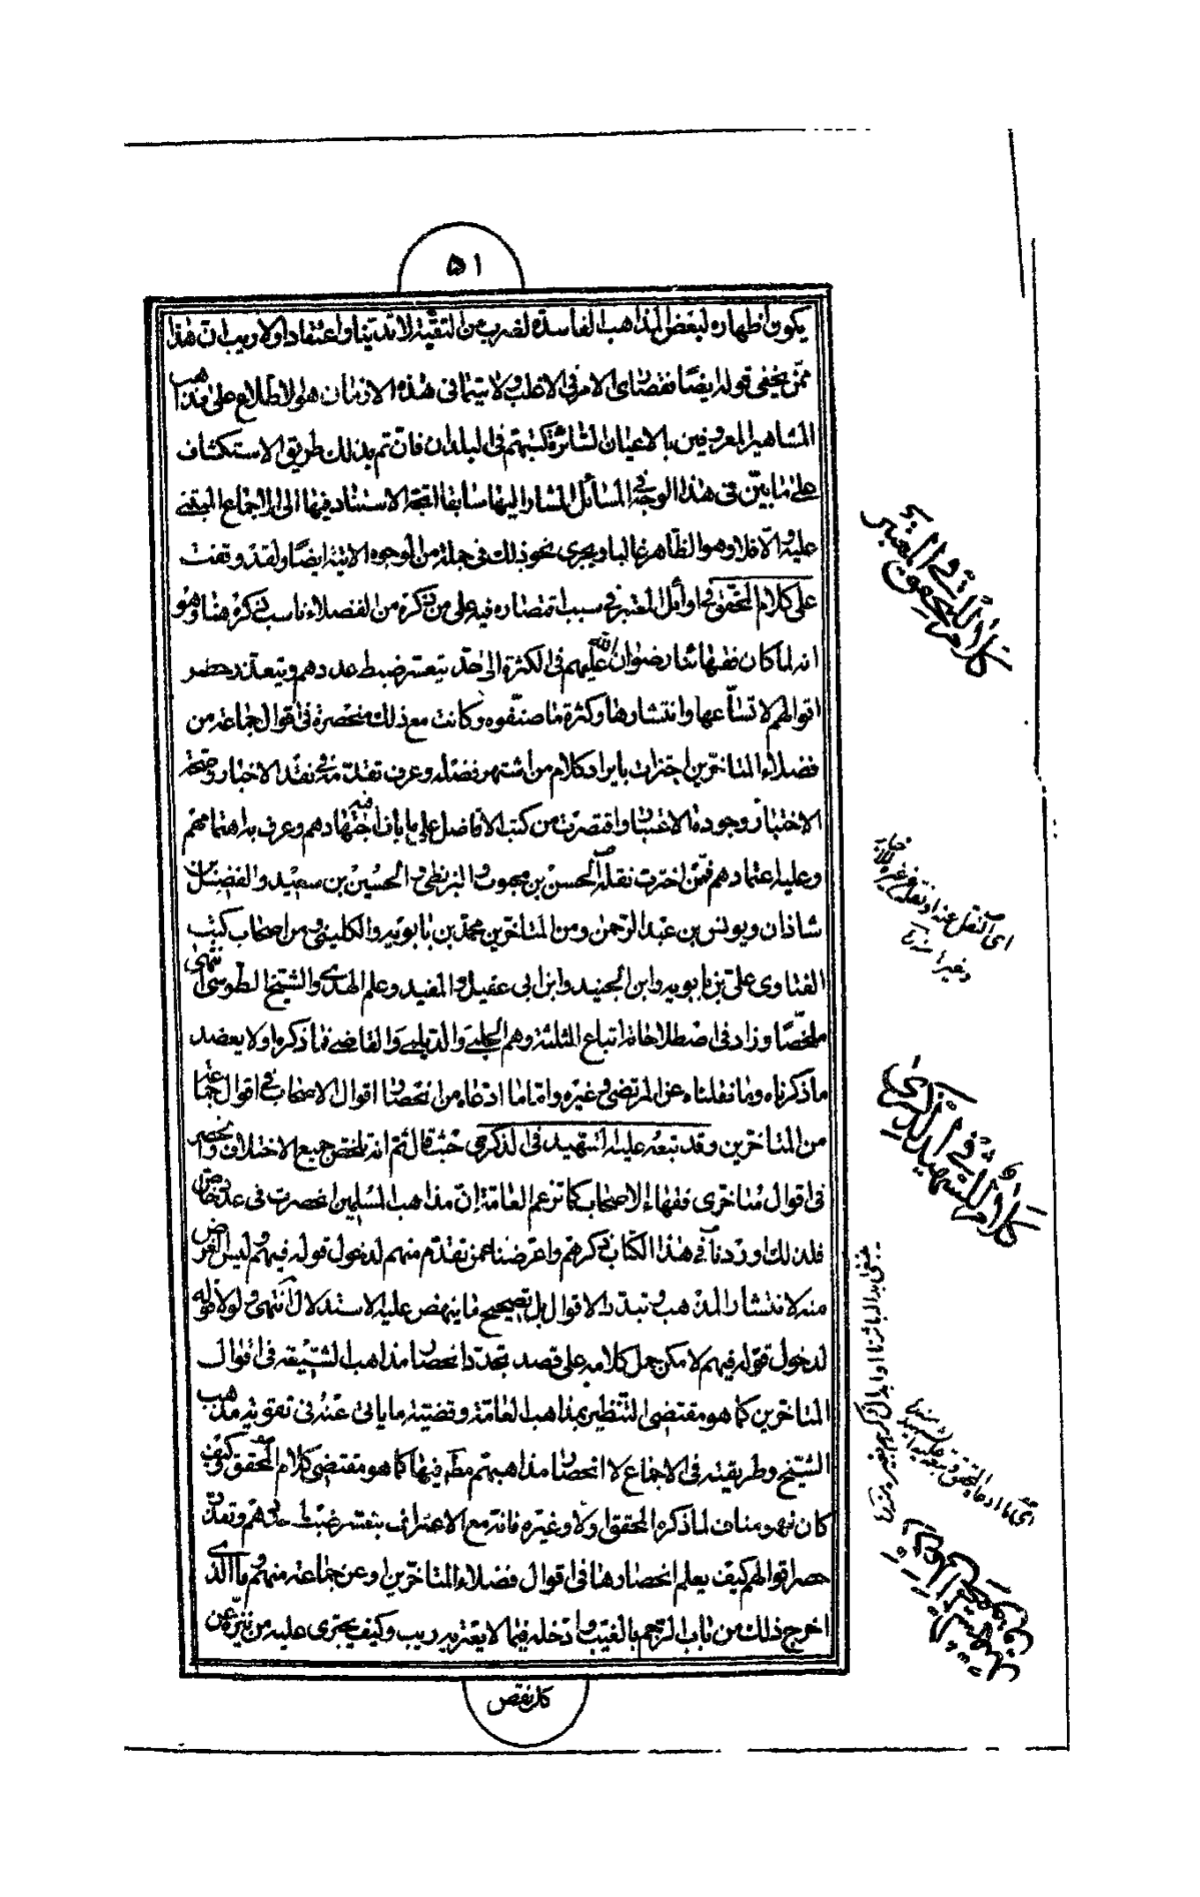 ٥١
يكون اظهاره لبعض المذاهب الفاسدة لضرب من التقية لا تدينا واعتقادا ولا ريب ان هذا
ممن يخفى قوله ايضا فقصارى الامر فى الاغلب ولا سيما فى هذه الازمان هو الاطلاع على مذاهب
المشاهير المعروفين بالاعيان السائرة كتبهم فى البلدان فان تم بذلك طريق الاستكشاف
على ما بين فى هذا الوجه فى المسائل المشار اليها سابقا اتجه الاستناد فيها الى الاجماع المبتنى
عليه والا فلا وهو الظاهر غالبا ويجرى نحو ذلك فى جملة من الوجوه الاتية ايضا ولقد وقفت
على كلام المحقق فى اوائل المعتبر فى سبب اقتصاره فيه على من ذكره من الفضلاء ناسب ذكره هنا وهو
انه لما كان فقهائنا رضوان الله عليهم فى الكثرة الى حد يتعسر ضبط عددهم ويتعذر حصر
اقوالهم لاتساعها وانتشارها وكثرة ما صنفوه وكانت مع ذلك منحصرة فى اقوال جماعة من
فضلاء المتاخرين اجتزات بايراد كلام من اشتهر فضله وعرف تقدمه فى نقد الاخبار وصحة
الاختيار وجودة الاعتبار واقتصرت من كتب الافاضل على ما بان فيه اجتهادهم وعرف به اهتمامهم
وعليه اعتمادهم فممن اخترت نقله الحسن بن محبوب والبزنطى والحسين بن سعيد والفضل بن
شاذان ويونس بن عبد الرحمن ومن المتاخرين محمد بن بابويه والكلينى ومن اصحاب كتب
الفتاوى على بن بابويه وابن الجنيد وابن ابى عقيل والمفيد وعلم الهدى والشيخ الطوسى انتهى
ملخصا وزاد فى اصطلاحاته اتباع الثلثة وهم الحلبى والديلمى والقاضى فما ذكره اولا يعضد
ما ذكرناه وما نقلناه عن المرتضى وغيره واما ما ادعاه من انحصار اقوال الاصحاب فى اقوال جماعة
من المتاخرين وقد تبعه عليه الشهيد فى الذكرى حيث قال ثم انه تلخص جميع الاختلاف وانحصر
فى اقوال متاخرى فقهاء الاصحاب كما تزعم العامة ان مذاهب المسلمين انحصرت فى عدة خاص
فلذلك اوردنا فى هذا الكتاب ذكرهم واعرضنا عمن تقدم منهم لدخول قوله فيهم وليس الغرض
منه الانتشار المذهب وتبدد الاقوال بل تصحيح ما ينهض عليه الاستدلال انتهى ولولا قوله
لدخول قوله فيهم لامكن حمل كلامه على قصد تجدد انحصار مذاهب الشيعة فى اقوال
المتاخرين كما هو مقتضى التنظير بمذاهب العامة وقضية ما ياتى عنه فى تقوية مذهب
الشيخ وطريقته فى الاجماع لا انحصار مذاهبهم مطلقا فيها كما هو مقتضى كلام المحقق وكيف
كان فهو مناف لما ذكره المحقق اولا وغيره فانه مع الاعتراف بتعسر ضبط عددهم وتعذر
حصر اقوالهم كيف يعلم انحصارها فى اقوال فضلاء المتاخرين او عن جماعة منهم وما الذى
اخرج ذلك من باب الرجم بالغيب وادخله فيما لا يعتريه ريب وكيف يجترى عليه من تنزه عن
كل نقص
كلام المحقق فى المعتبر
كلام الشهيد فى الذكرى